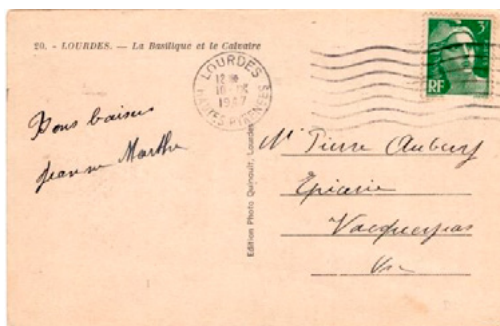 20. - LOURDES. — La Basilique et le Calvaire
LOURDES
12 H
10 - IX
1947
HAUTES PYRENEES
3F
RF
Bons baisers
Jeanne Marthe
Edition Photo Quinault, Lourdes
Mr Pierre Aubery
Epicerie
Vacqueyras